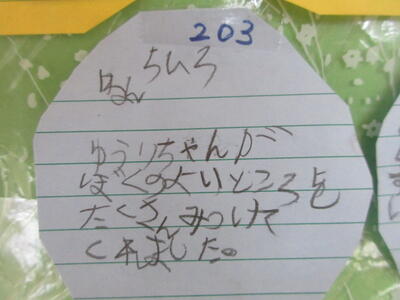 203
ちひろ
ゆうりちゃんが
ぼくのよいところを
たくさんみつけて
くれました。